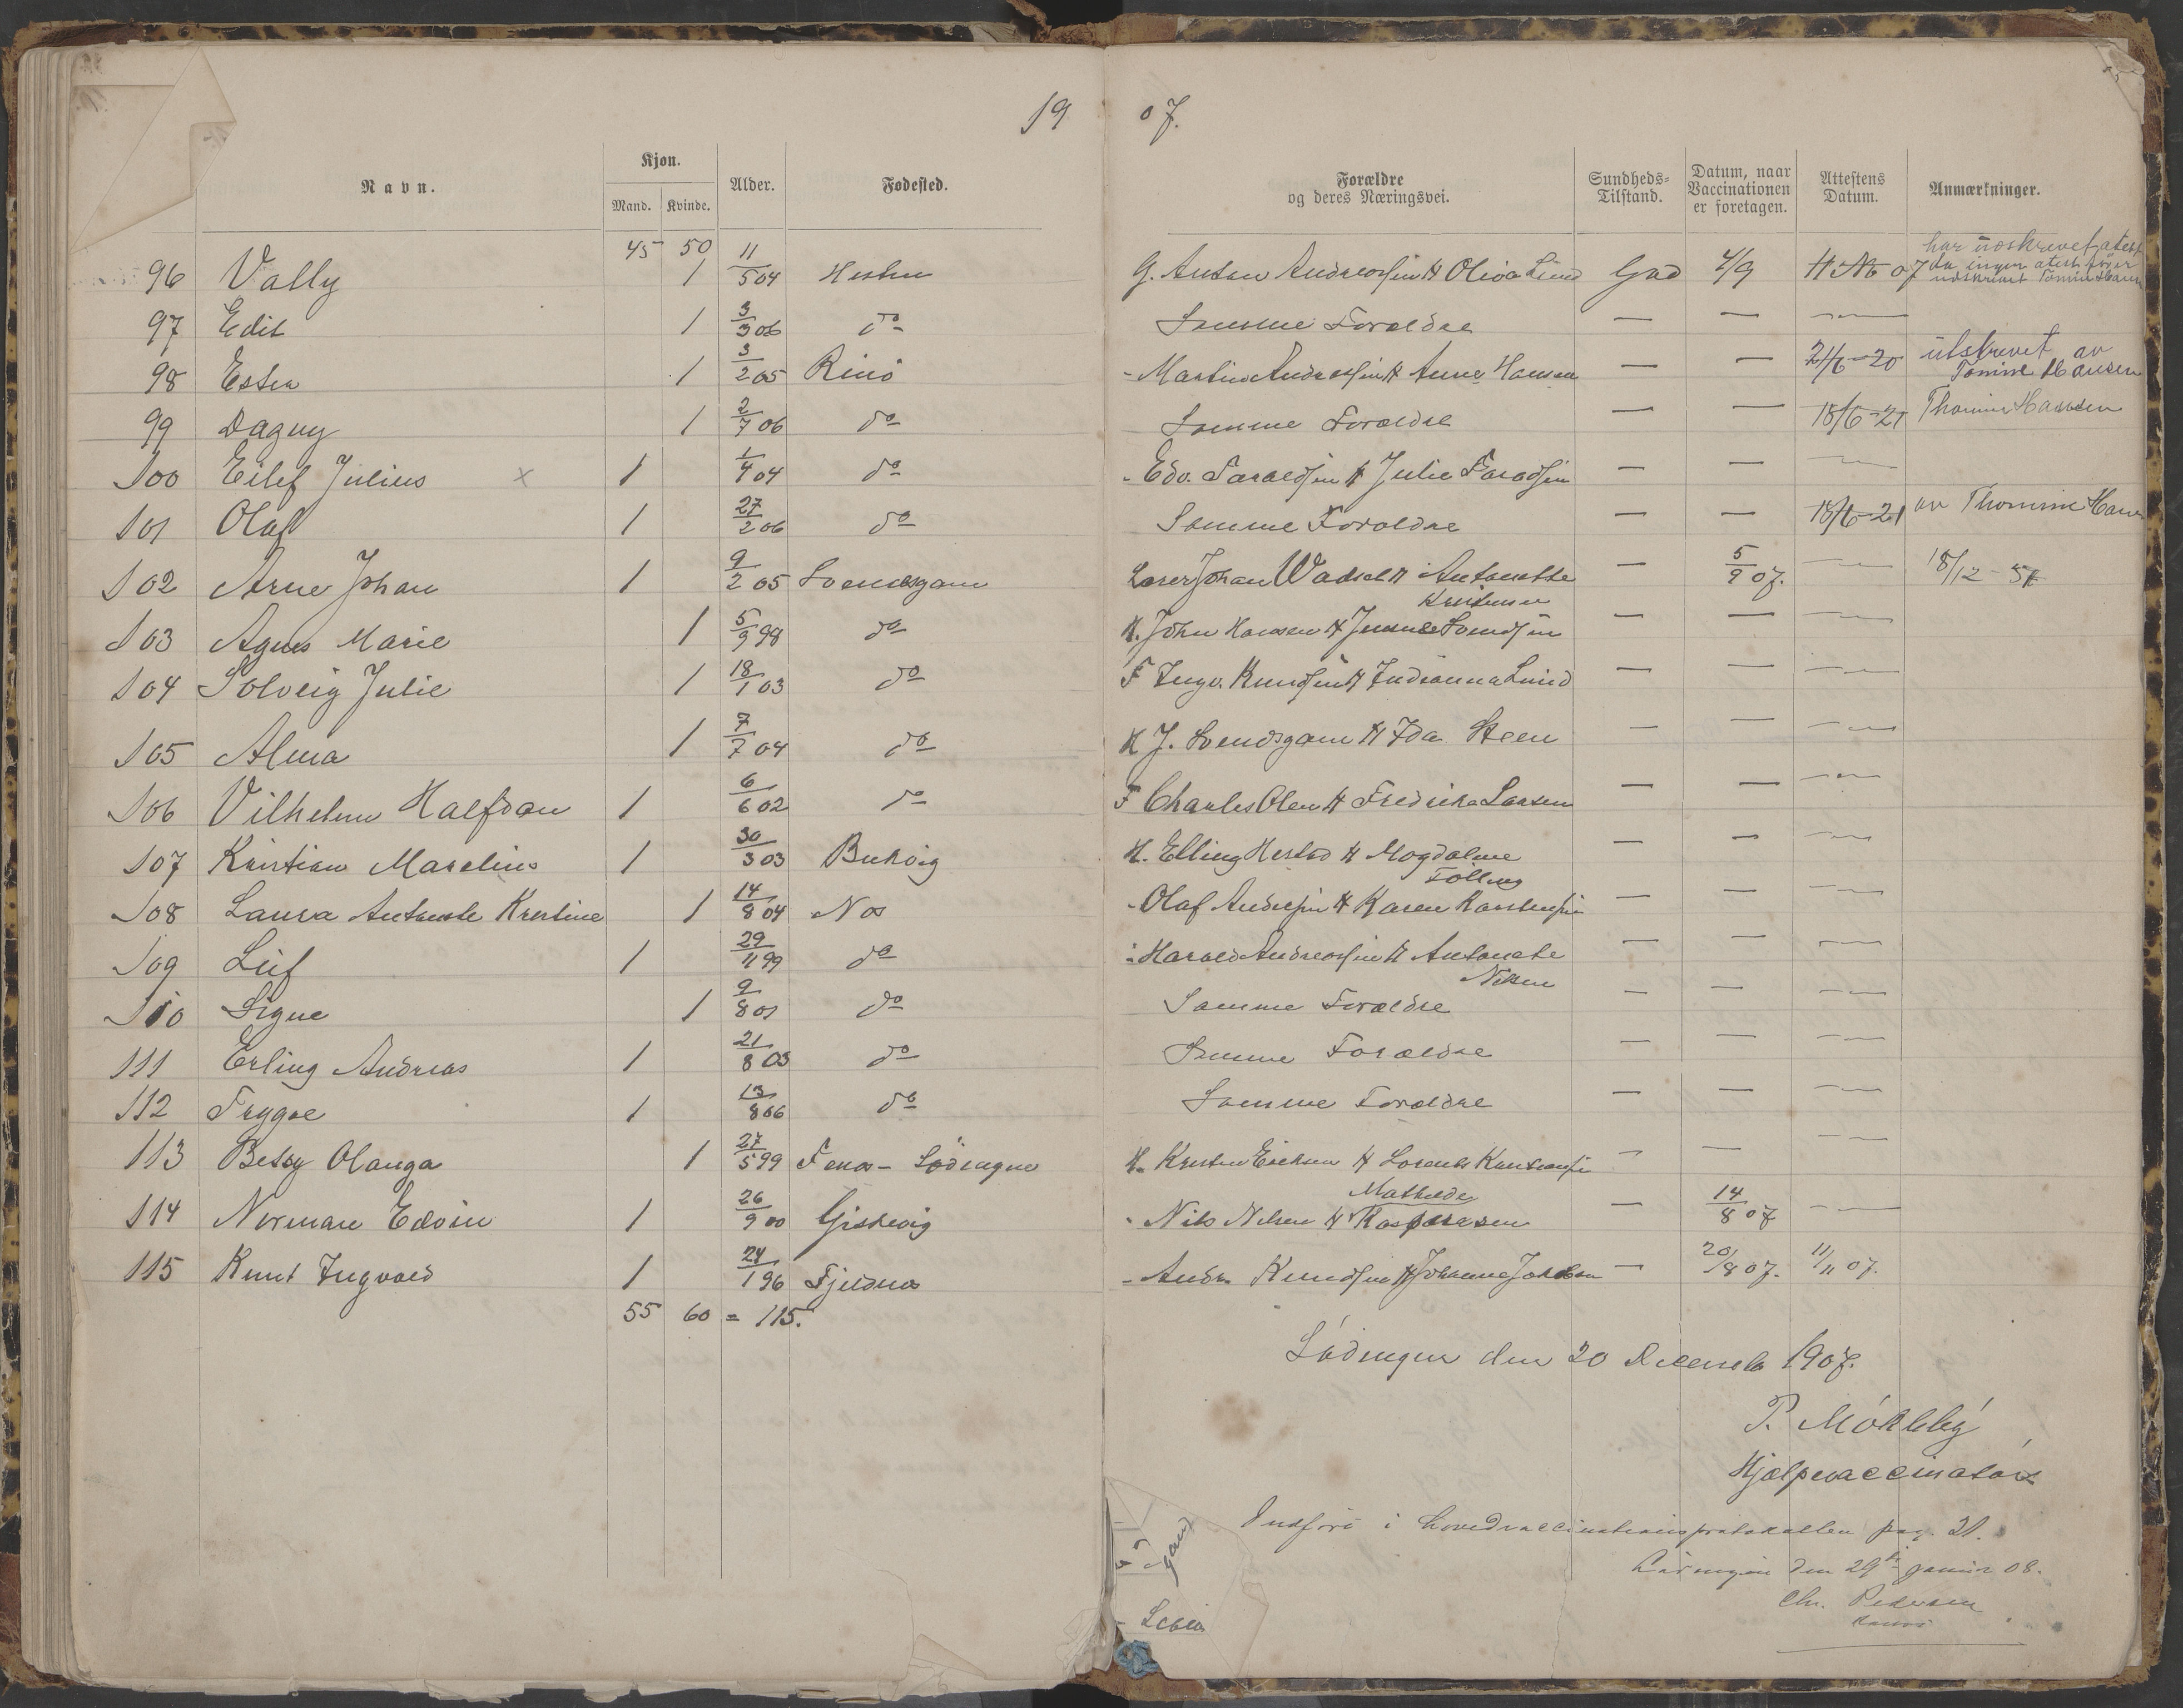 19 07.
Navn. Kjøn. Mand. Kvinde. Alder. Fødested. Forældre og deres Næringsvei. Sundheds-Tilstand. Datum, naar Vaccinationen er foretagen. Attestens Datum. Anmærkninger.
45 50
96 Vally 1 11/5 04 Hestun G. Anton Andreassen H Oliva Lind God 4/9 07 har udskrevet atest da ingen atest før er udskrevet Tomine Hansen
97 Edit 1 3/3 06 do Samme Forældre — — —
98 Ester 1 3/2 05 Rinø - Martin Andreassen H Anna Hansen — — 21/6-20 utskrevet av Tomine Hansen
99 Dagny 1 2/7 06 do Samme Forældre — — 18/6-21 Thomine Hansen
100 Eilef Julius x 1 1/4 04 do - Edv. H Julie — — —
101 Olaf 1 27/2 06 do Samme Forældre — — 18/6-21 av Thomine Hansen
102 Arne Johan 1 9/2 05 Svendsgam Johan H Antonette Kristensen — 5/9 07. — 18/12-51
103 Agnes Marie 1 5/9 98 do H. John Hansen H Svendsen — — —
104 Solveig Julie 1 18/1 03 do F Ingv. Knudsen H Indianna Lund — — —
105 Alma 1 7/7 04 do H J. Svendsgam H Ida Steen — — —
106 Vilhelm Halfdan 1 6/6 02 do F Charles Olsen H Fredrika Larsen — — —
107 Kristian Marelius 1 30/3 03 Bukvig H. Elling Hestad H Magdalene — — —
108 Laura Antonette Kristine 1 14/8 04 Nes - Olaf Andersen H Karen Karstensen — — —
109 Leif 1 29/11 99 do - Harald Andreassen H Antonete Nilsen — — —
110 Signe 1 9/8 01 do Samme Forældre — — —
111 Erling Andreas 1 21/8 03 do Samme Forældre — — —
112 Trygve 1 13/8 06 do Samme Forældre — — —
113 Betsy Olanga 1 27/5 99 - Lødingen H. Kristen Eriksen H — — —
114 Norman Edvin 1 26/9 00 Giskevig - Nils Nilsen H Mathilde Kasparasen — 14/8 07 —
115 Knut Ingvald 1 24/1 96 Fjeldnes - Andr. Knudsen H Johanne — 20/8 07. 11/11 07.
55 60 = 115.
Lødingen den 20 Decembr 1907.
P. Møkleby
Hjælpevaccinatør
Indført i hovedvaccinationsprotokollen pag. 21.
Lødingen den 29de januar 08.
Chr. Pedersen